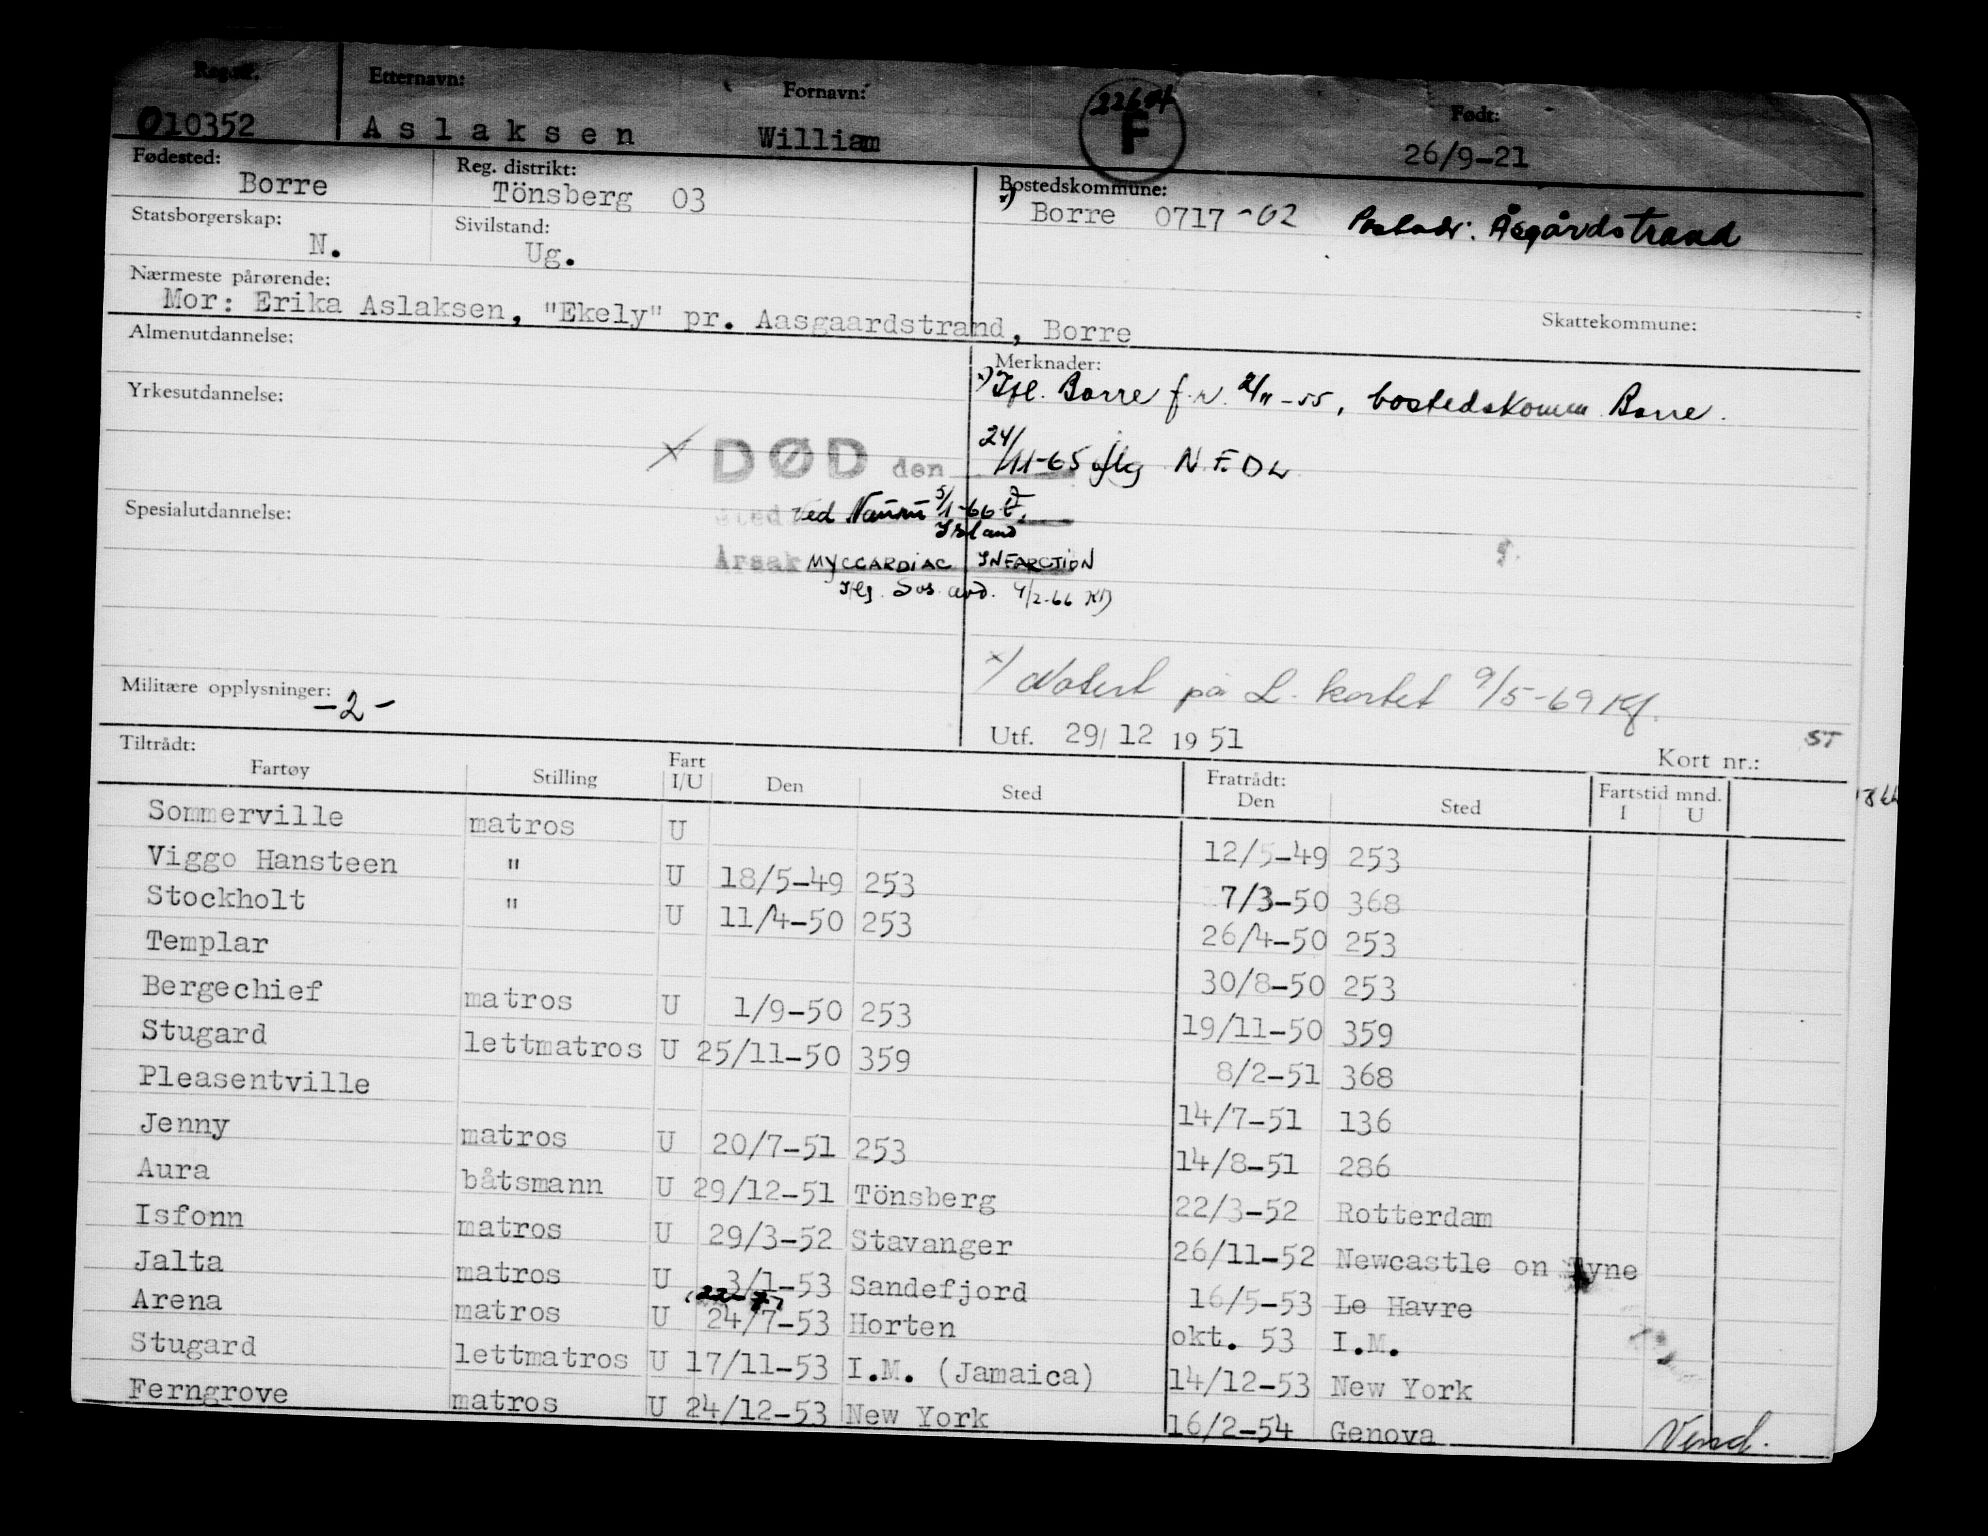 Reg.nr. Etternavn: Fornavn: Født:
010352 Aslaksen William F 26/9-21
Fødested: Reg. distrikt: Bostedskommune:
Borre Tönsberg 03 x) Borre 0717-02 Postadr: Åsgårdstrand
Statsborgerskap: Sivilstand:
N. Ug.
Nærmeste pårørende:
Mor: Erika Aslaksen, "Ekely" pr. Aasgaardstrand, Borre
Skattekommune:
Almenutdannelse: Merknader:
x) Ifl. Borre f.r. 2/11-55, bostedskomm. Borre.
Yrkesutdannelse:
x DØD den 24/11-65 iflg N.F.D.L.
Sted ved Nauru 5/1-66
Island
Spesialutdannelse:
Årsak MYCCARDIAC INFARCTION
Iflg. Sos. avd. 4/2-66
x) Notert på L. kortet 9/5-69 Kf.
Militære opplysninger: -2-
Utf. 29/12 1951
ST
Kort nr.:
Tiltrådt: Fratrådt:
Fartøy Stilling Fart I/U Den Sted Den Sted Fartstid mnd. I U
Sommerville matros U 12/5-49 253
Viggo Hansteen " U 18/5-49 253 7/3-50 368
Stockholt " U 11/4-50 253 26/4-50 253
Templar 30/8-50 253
Bergechief matros U 1/9-50 253 19/11-50 359
Stugard lettmatros U 25/11-50 359 8/2-51 368
Pleasentville 14/7-51 136
Jenny matros U 20/7-51 253 14/8-51 286
Aura båtsmann U 29/12-51 Tönsberg 22/3-52 Rotterdam
Isfonn matros U 29/3-52 Stavanger 26/11-52 Newcastle on Tyne
Jalta matros U 3/1-53 Sandefjord 16/5-53 Le Havre
(22-7)
Arena matros U 24/7-53 Horten okt. 53 I.M.
Stugard lettmatros U 17/11-53 I.M. (Jamaica) 14/12-53 New York
Ferngrove matros U 24/12-53 New York 16/2-54 Genova
Vend.